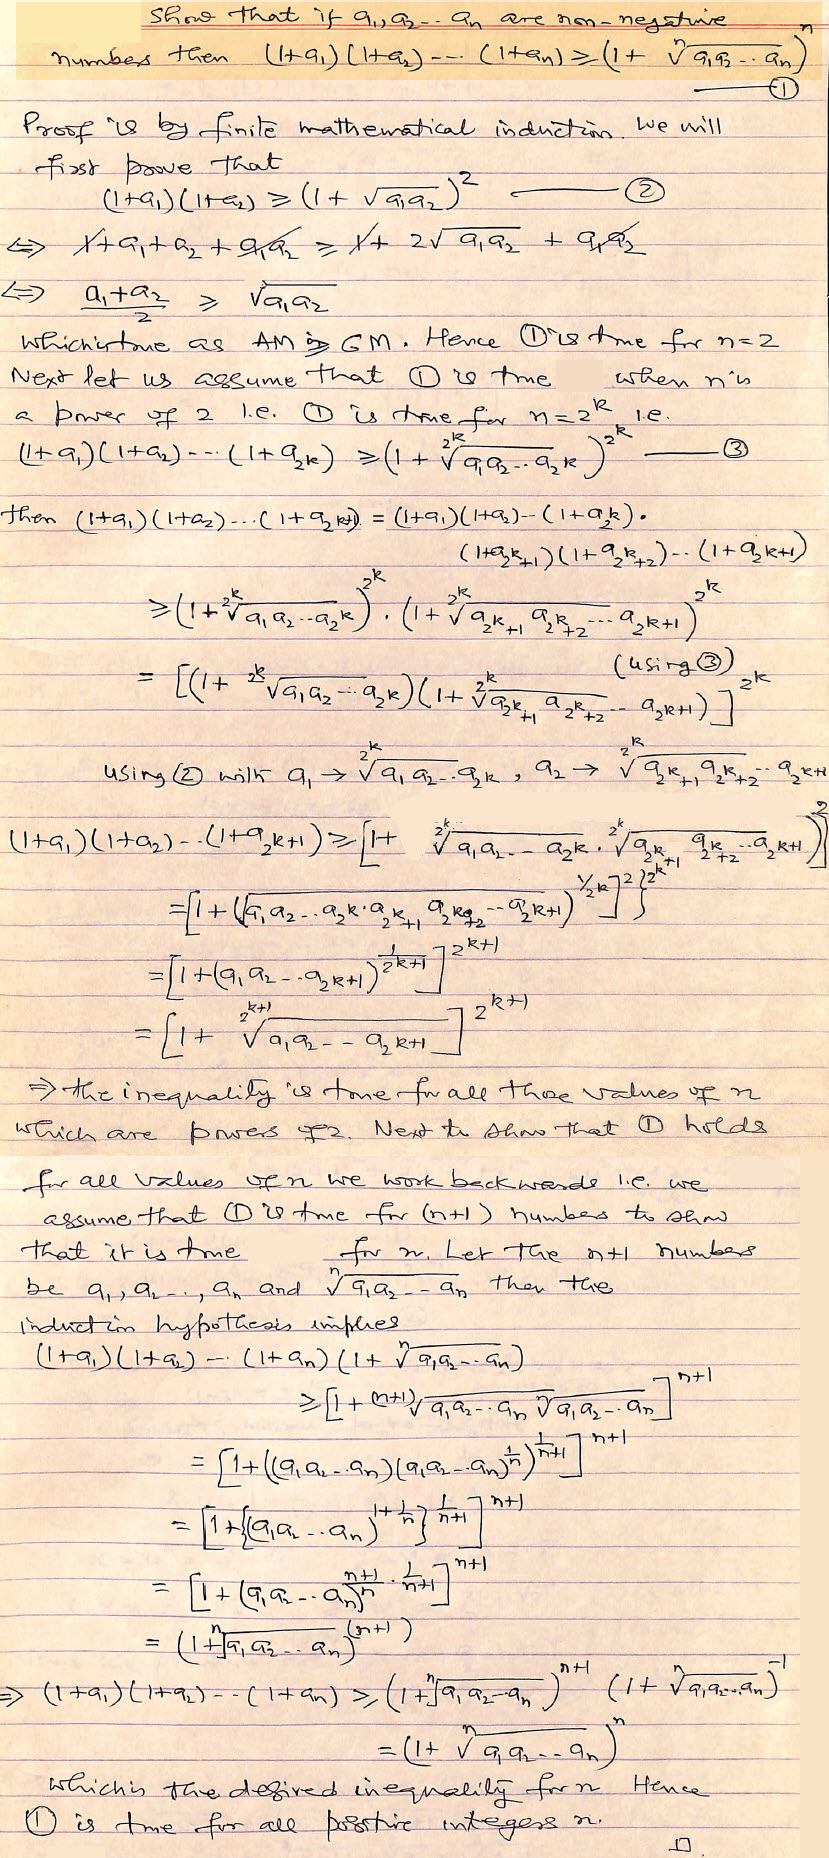 Show that if a₁, a₂ -- aₙ are non-negative
numbers then (1+a₁)(1+a₂)---- (1+aₙ) ≥ (1 + ⁿ√(a₁a₂ -- aₙ))ⁿ
—— ①
Proof is by finite mathematical induction. We will
first prove that
(1+a₁)(1+a₂) ≥ (1 + √(a₁a₂))² —— ②
⇔ 1+a₁+a₂+a₁a₂ ≥ 1+ 2√(a₁a₂) + a₁a₂
⇔ (a₁+a₂)/2 ≥ √(a₁a₂)
which is true as AM ≥ GM. Hence ① is true for n=2
Next let us assume that ① is true when n is
a power of 2 i.e. ① is true for n=2^k i.e.
(1+a₁)(1+a₂)---(1+a_{2^k}) ≥ (1 + ^{2^k}√(a₁a₂--a_{2^k}))^{2^k} —— ③
then (1+a₁)(1+a₂)...(1+a_{2^{k+1}}) = (1+a₁)(1+a₂)--(1+a_{2^k}).
(1+a_{2^k+1})(1+a_{2^k+2})--(1+a_{2^{k+1}})
≥ (1+ ^{2^k}√(a₁a₂--a_{2^k}))^{2^k} . (1+ ^{2^k}√(a_{2^k+1} a_{2^k+2}--- a_{2^{k+1}}))^{2^k}
(using ③)
= [(1+ ^{2^k}√(a₁a₂---a_{2^k}))(1+ ^{2^k}√(a_{2^k+1} a_{2^k+2}-- a_{2^{k+1}}))]^{2^k}
using ② with a₁ → ^{2^k}√(a₁a₂--a_{2^k}), a₂ → ^{2^k}√(a_{2^k+1} a_{2^k+2}-- a_{2^{k+1}})
(1+a₁)(1+a₂)--(1+a_{2^{k+1}}) ≥ [1+ √(^{2^k}√(a₁a₂--a_{2^k}) . ^{2^k}√(a_{2^k+1} a_{2^k+2}--a_{2^{k+1}}))]²
= [1+(√(a₁a₂--a_{2^k}.a_{2^k+1} a_{2^k+2}--a_{2^{k+1}}))^{1/2^k}]²}^{2^k}
= [1+(a₁a₂--a_{2^{k+1}})^{1/2^{k+1}}]^{2^{k+1}}
= [1+ ^{2^{k+1}}√(a₁a₂-- a_{2^{k+1}})]^{2^{k+1}}
⇒ the inequality is true for all those values of n
which are powers of 2. Next to show that ① holds
for all values of n we work backwards i.e. we
assume that ① is true for (n+1) numbers to show
that it is true for n. Let the n+1 numbers
be a₁, a₂--, aₙ and ⁿ√(a₁a₂--aₙ) then the
induction hypothesis implies
(1+a₁)(1+a₂)--(1+aₙ)(1+ ⁿ√(a₁a₂--aₙ))
≥ [1+ ^{(n+1)}√(a₁a₂--aₙ ⁿ√(a₁a₂--aₙ))]^{n+1}
= [1+((a₁a₂--aₙ)(a₁a₂--aₙ)^{1/n})^{1/(n+1)}]^{n+1}
= [1+{(a₁a₂--aₙ)^{1+1/n}}^{1/(n+1)}]^{n+1}
= [1+(a₁a₂--aₙ)^{(n+1)/n . 1/(n+1)}]^{n+1}
= (1+ ⁿ√(a₁a₂--aₙ))^{(n+1)}
⇒ (1+a₁)(1+a₂)--(1+aₙ) ≥ (1+ ⁿ√(a₁a₂--aₙ))^{n+1} (1+ ⁿ√(a₁a₂--aₙ))^{-1}
= (1+ ⁿ√(a₁a₂--aₙ))ⁿ
which is the desired inequality for n Hence
① is true for all positive integers n.
□.